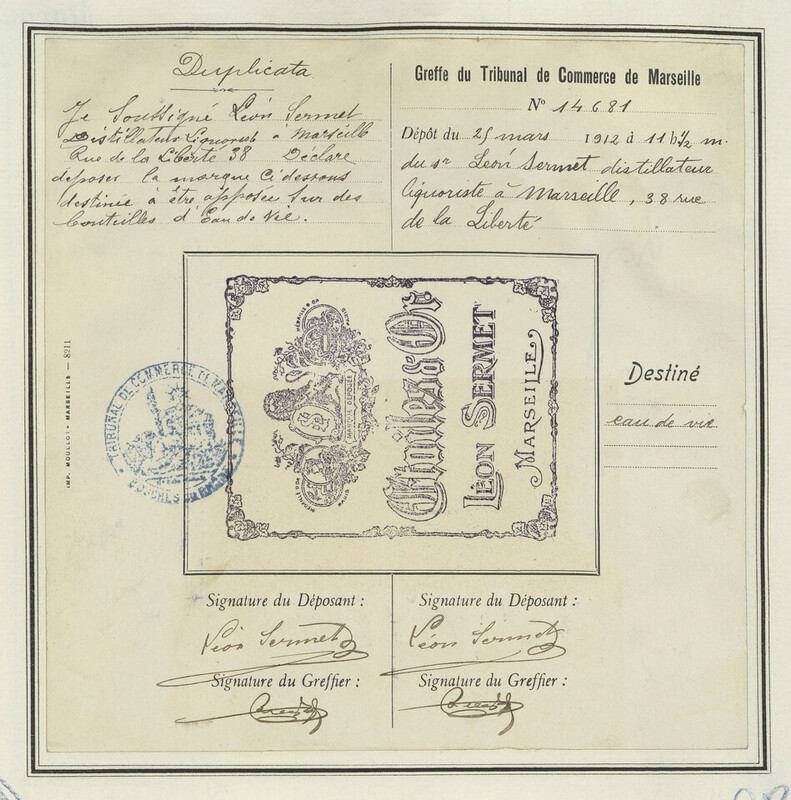 Duplicata
Je Soussigné Léon Sermet
Distillateur Liquoriste à Marseille
Rue de la Liberté 38 Déclare
déposer la marque ci dessous
destinée à être apposée sur des
bouteilles d'Eau de Vie.
Greffe du Tribunal de Commerce de Marseille
N° 14681
Dépôt du 25 mars 1912 à 11 h ½ m.
du sr Léon Sermet distillateur
liquoriste à Marseille, 38 rue
de la Liberté
IMP. MOULLOT - MARSEILLE — 8211
TRIBUNAL DE COMMERCE DE MARSEILLE
BOUCHES DU RHONE
MARQUE DEPOSÉE
Etoiles d'Or
LÉON SERMET
MARSEILLE
Destiné
eau de vie
Signature du Déposant :
Léon Sermet
Signature du Greffier :
Signature du Déposant :
Léon Sermet
Signature du Greffier :